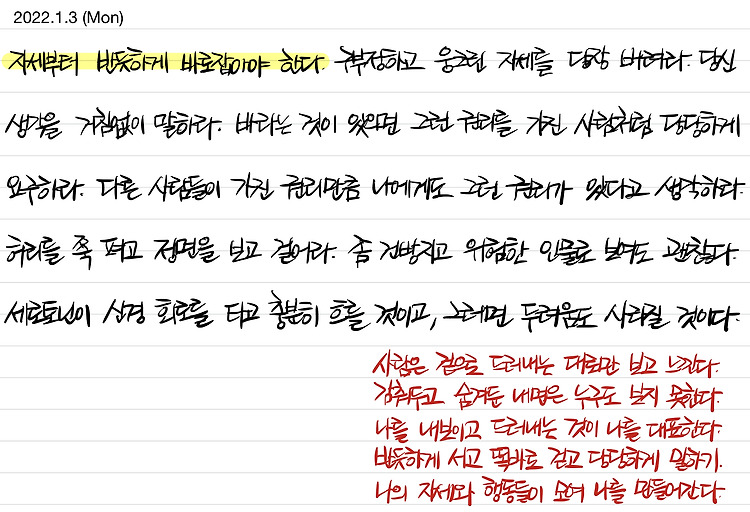 2022.1.3 (Mon)
자세부터 반듯하게 바로잡아야 한다. 구부정하고 웅크린 자세를 당장 버려라. 당신
생각을 거침없이 말하라. 바라는 것이 있으면 그런 권리를 가진 사람처럼 당당하게
요구하라. 다른 사람들이 가진 권리만큼 나에게도 그런 권리가 있다고 생각하라.
허리를 쭉 펴고 정면을 보고 걸어라. 좀 건방지고 위험한 인물로 보여도 괜찮다.
세로토닌이 신경 회로를 타고 충분히 흐를 것이고, 그러면 두려움도 사라질 것이다.
사람은 겉으로 드러내는 대로만 보고 느낀다.
감춰두고 숨겨둔 내면은 누구도 보지 못한다.
나를 내보이고 드러내는 것이 나를 대표한다.
반듯하게 서고 똑바로 걷고 당당하게 말하기.
나의 자세와 행동들이 모여 나를 만들어간다.